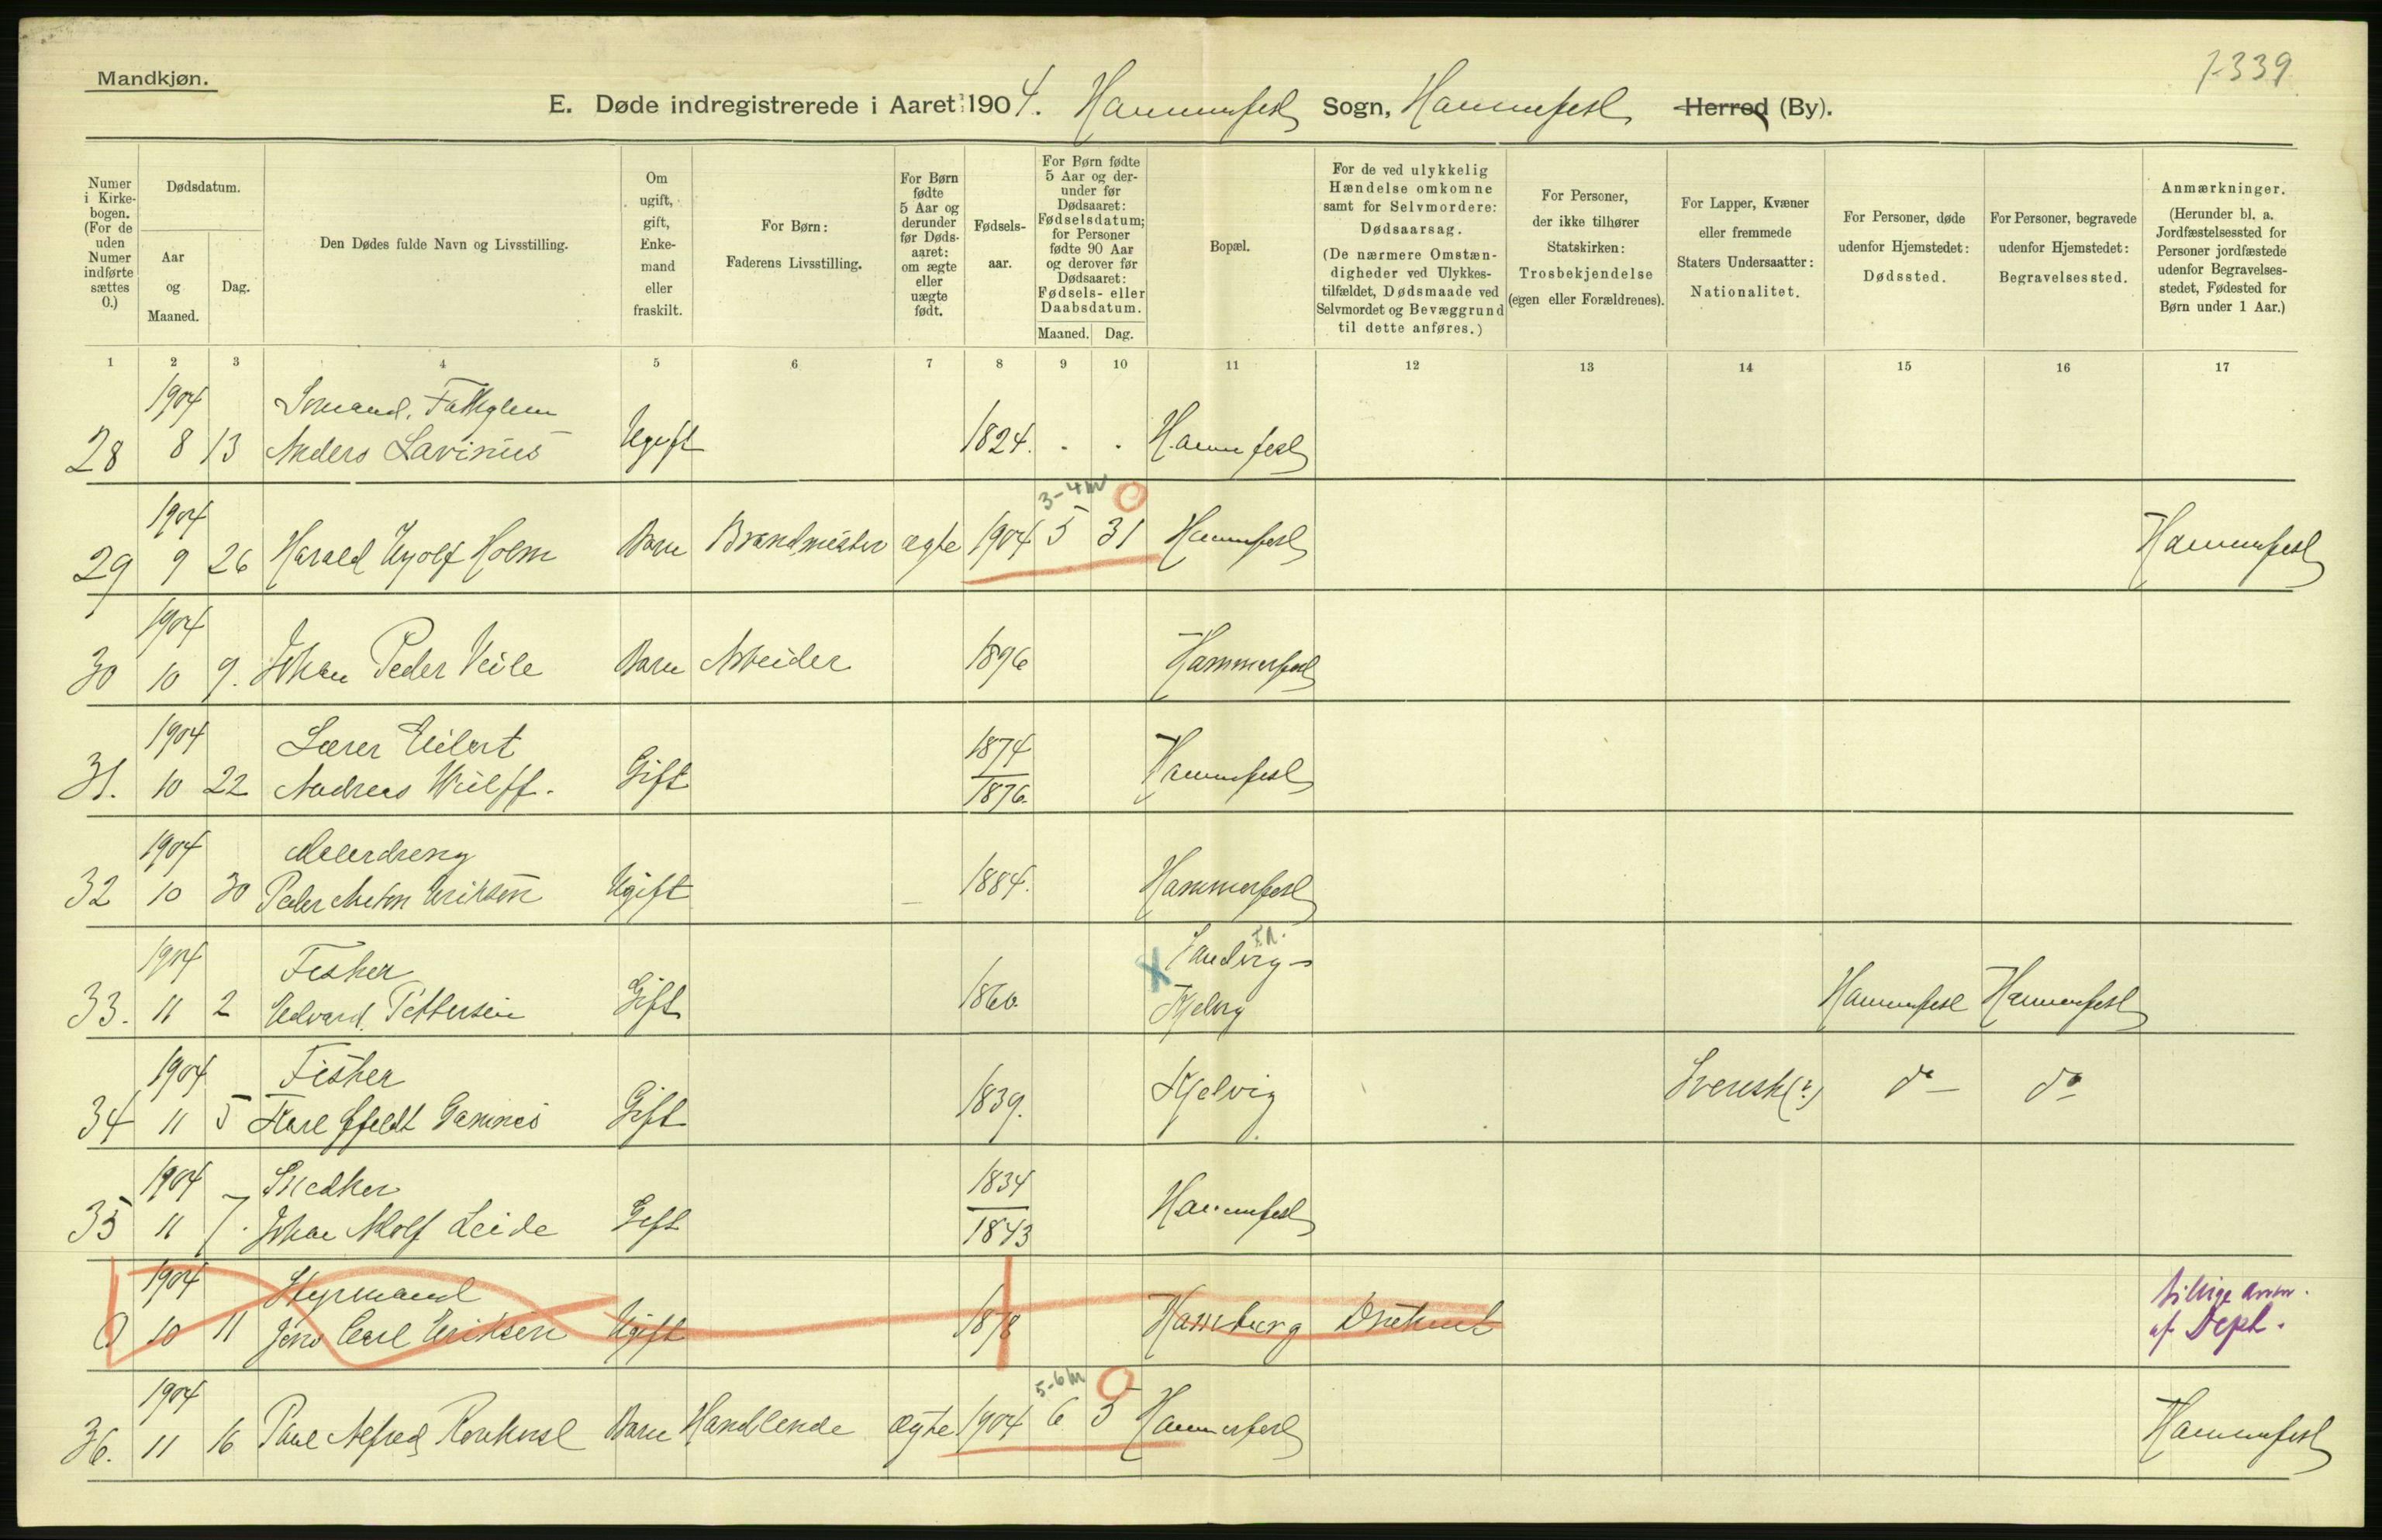 7-339
Mandkjøn.
E. Døde indregistrerede i Aaret 1904. Hammerfest Sogn, Hammerfest Herred (By).
Numer i Kirke-bogen. (For de uden Numer indførte sættes 0.)
Dødsdatum.
Aar og Maaned.
Dag.
Den Dødes fulde Navn og Livsstilling.
Om ugift, gift, Enke-mand eller fraskilt.
For Børn: Faderens Livsstilling.
For Børn fødte 5 Aar og derunder før Døds-aaret: om ægte eller uægte født.
Fødsels-aar.
For Børn fødte 5 Aar og der-under før Dødsaaret: Fødselsdatum; for Personer fødte 90 Aar og derover før Dødsaaret: Fødsels- eller Daabsdatum.
Maaned. Dag.
Bopæl.
For de ved ulykkelig Hændelse omkomne samt for Selvmordere: Dødsaarsag. (De nærmere Omstæn-digheder ved Ulykkes-tilfældet, Dødsmaade ved Selvmordet og Bevæggrund til dette anføres.)
For Personer, der ikke tilhører Statskirken: Trosbekjendelse (egen eller Forældrenes).
For Lapper, Kvæner eller fremmede Staters Undersaatter: Nationalitet.
For Personer, døde udenfor Hjemstedet: Dødssted.
For Personer, begravede udenfor Hjemstedet: Begravelsessted.
Anmærkninger. (Herunder bl. a. Jordfæstelsessted for Personer jordfæstede udenfor Begravelses-stedet, Fødested for Børn under 1 Aar.)
1 2 3 4 5 6 7 8 9 10 11 12 13 14 15 16 17
1904
28 8 13 Anders Lavinus Ugift 1824. Hammerfest
1904 3-4 m
29 9 26 Harald Holm Barn Brandmester ægte 1904 5 31 Hammerfest Hammerfest
1904
30 10 9. Johan Peder Barn Arbeider 1896 Hammerfest
1904 Lærer Eilert 1874
31. 10 22 Andreas Wulff. Gift 1876. Hammerfest
1904 Malerdreng
32 10 30 Peder Anton Erikson Ugift 1884. Hammerfest
1904 Fisker
33. 11 2 Edvard Pettersen Gift 1860 Kjelvig Hammerfest Hammerfest
1904 Fisker
34 11 5 Gift 1839. Kjelvig Svensk(?) do do
1904 Snedker 1834
35 11 7. Johan Adolf Leide Gift 1843 Hammerfest
1904 Styrmand
0 10 11 Jens Carl Eriksen Ugift 1878 Hamburg Druknet
af Dept.
1904 5-6 m
36. 11 16 Paul Alfred Barn Handlende ægte 1904 6 5 Hammerfest Hammerfest